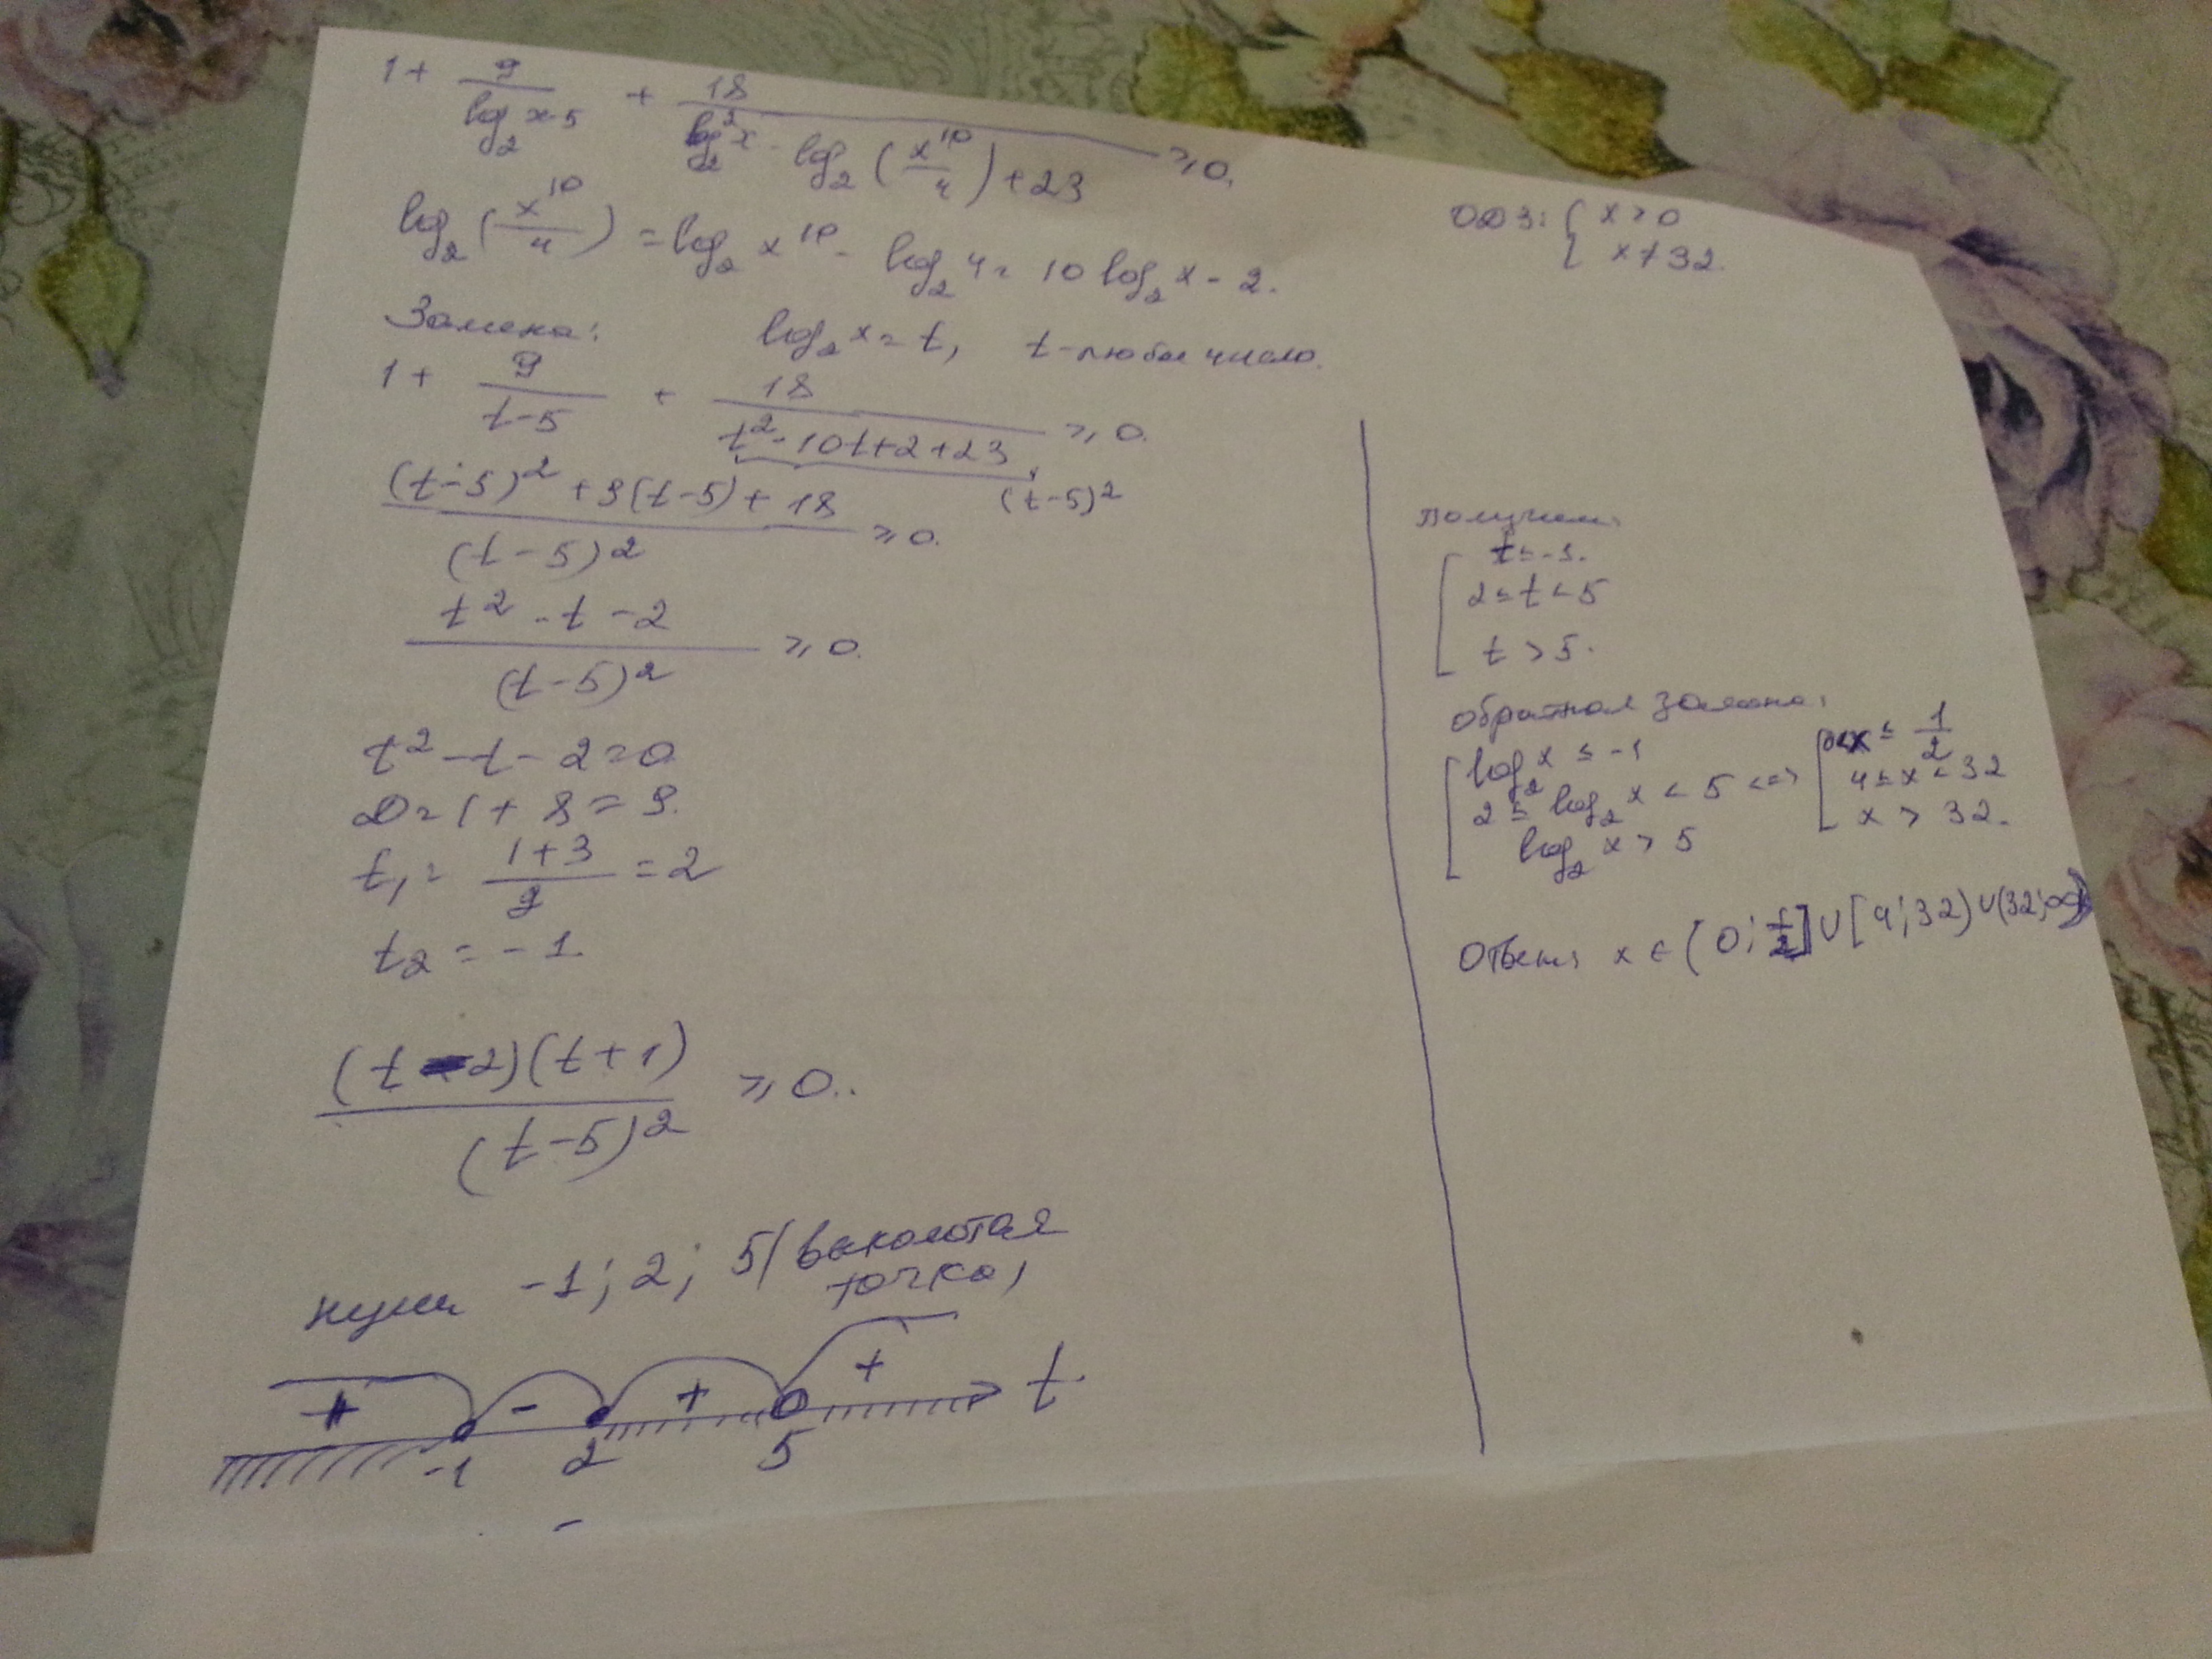 1 + 9/(log₂x-5) + 18/(log₂²x - log₂(x¹⁰/4) + 23) ≥ 0.
log₂(x¹⁰/4) = log₂x¹⁰ - log₂4 = 10log₂x - 2.
Замена: log₂x = t, t - любое число.
1 + 9/(t-5) + 18/(t² - 10t + 2 + 23) ≥ 0.
(t-5)²
((t-5)² + 9(t-5) + 18)/(t-5)² ≥ 0.
(t² - t - 2)/(t-5)² ≥ 0.
t² - t - 2 = 0
D = 1 + 8 = 9.
t₁ = (1+3)/2 = 2
t₂ = -1.
((t-2)(t+1))/(t-5)² ≥ 0.
нули -1; 2; 5/выколотая
точка/
+ - + + t
-1 2 5
-
ОДЗ: { x > 0
x ≠ 32.
Получим:
[ t ≤ -1.
2 ≤ t < 5
t > 5.
обратная замена:
[ log₂x ≤ -1
2 ≤ log₂x < 5 <=>
log₂x > 5
[ 0<x ≤ 1/2
4 ≤ x < 32
x > 32.
Ответ: x ∈ (0; 1/2] ∪ [4; 32) ∪ (32; ∞)